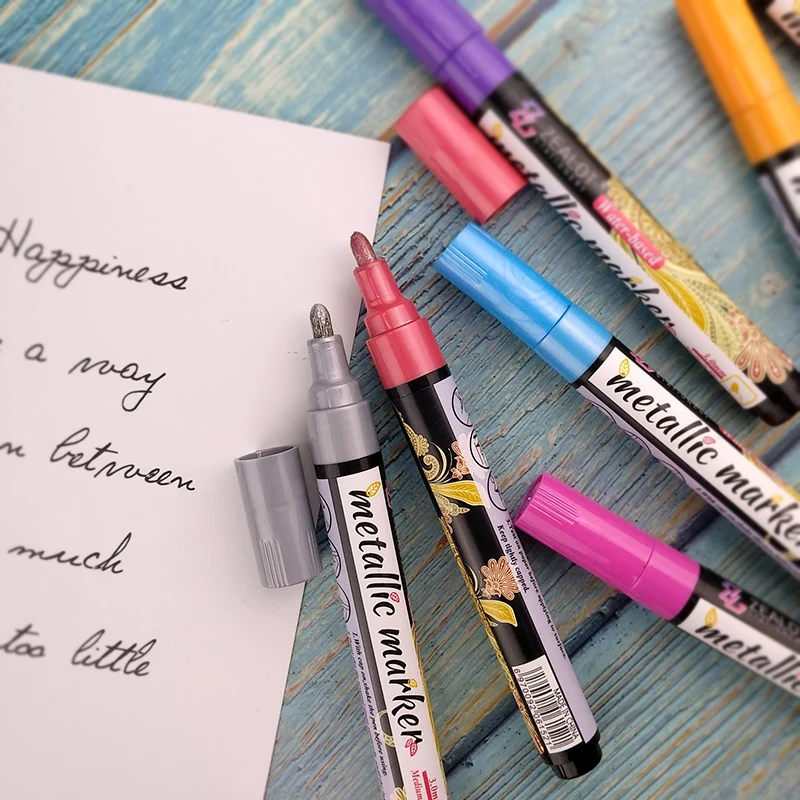 Happiness
a way
between
much
too little
ZEALOT
metallic marker
Water-based
3.0mm
metallic marker
Keep tightly capped.
MADE IN CHINA
metallic marker
1.With cap on,shake the pen before using.
Medium
3.0m
ZEALOT
metallic